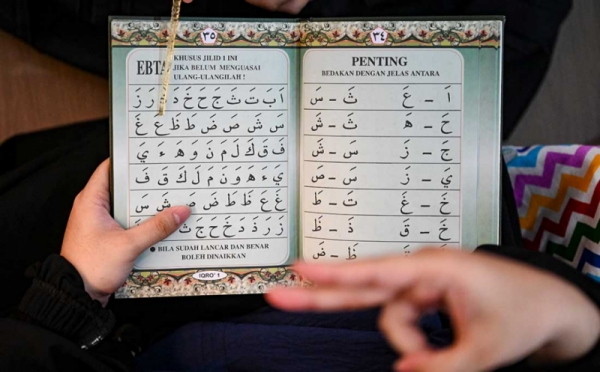 ٣٤
PENTING
BEDAKAN DENGAN JELAS ANTARA
اَ - عَ ثَ - سَ
حَ - هَ ثَ - شَ
جَ - زَ سَ - شَ
يَ - زَ صَ - سَ
خَ - غَ تَ - طَ
خَ - قَ ذَ - ظَ
ظَ - ضَ
٣٥
EBTA
KHUSUS JILID I INI
JIKA BELUM MENGUASAI
ULANG-ULANGILAH !
اَ بَ تَ ثَ جَ حَ خَ دَ رَ زَ
سَ شَ صَ ضَ طَ ظَ عَ غَ
فَ قَ كَ لَ مَ نَ وَ هَ ءَ يَ
يَ ءَ هَ وَ نَ مَ لَ كَ قَ فَ
غَ عَ ظَ طَ ضَ صَ شَ سَ
زَ رَ ذَ دَ خَ حَ جَ ثَ
● BILA SUDAH LANCAR DAN BENAR
BOLEH DINAIKKAN
IQRO' 1